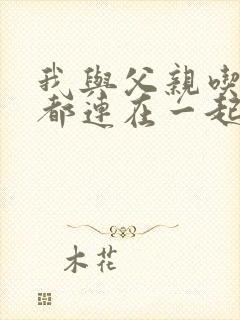 我與父親喫
都連在一起
木花